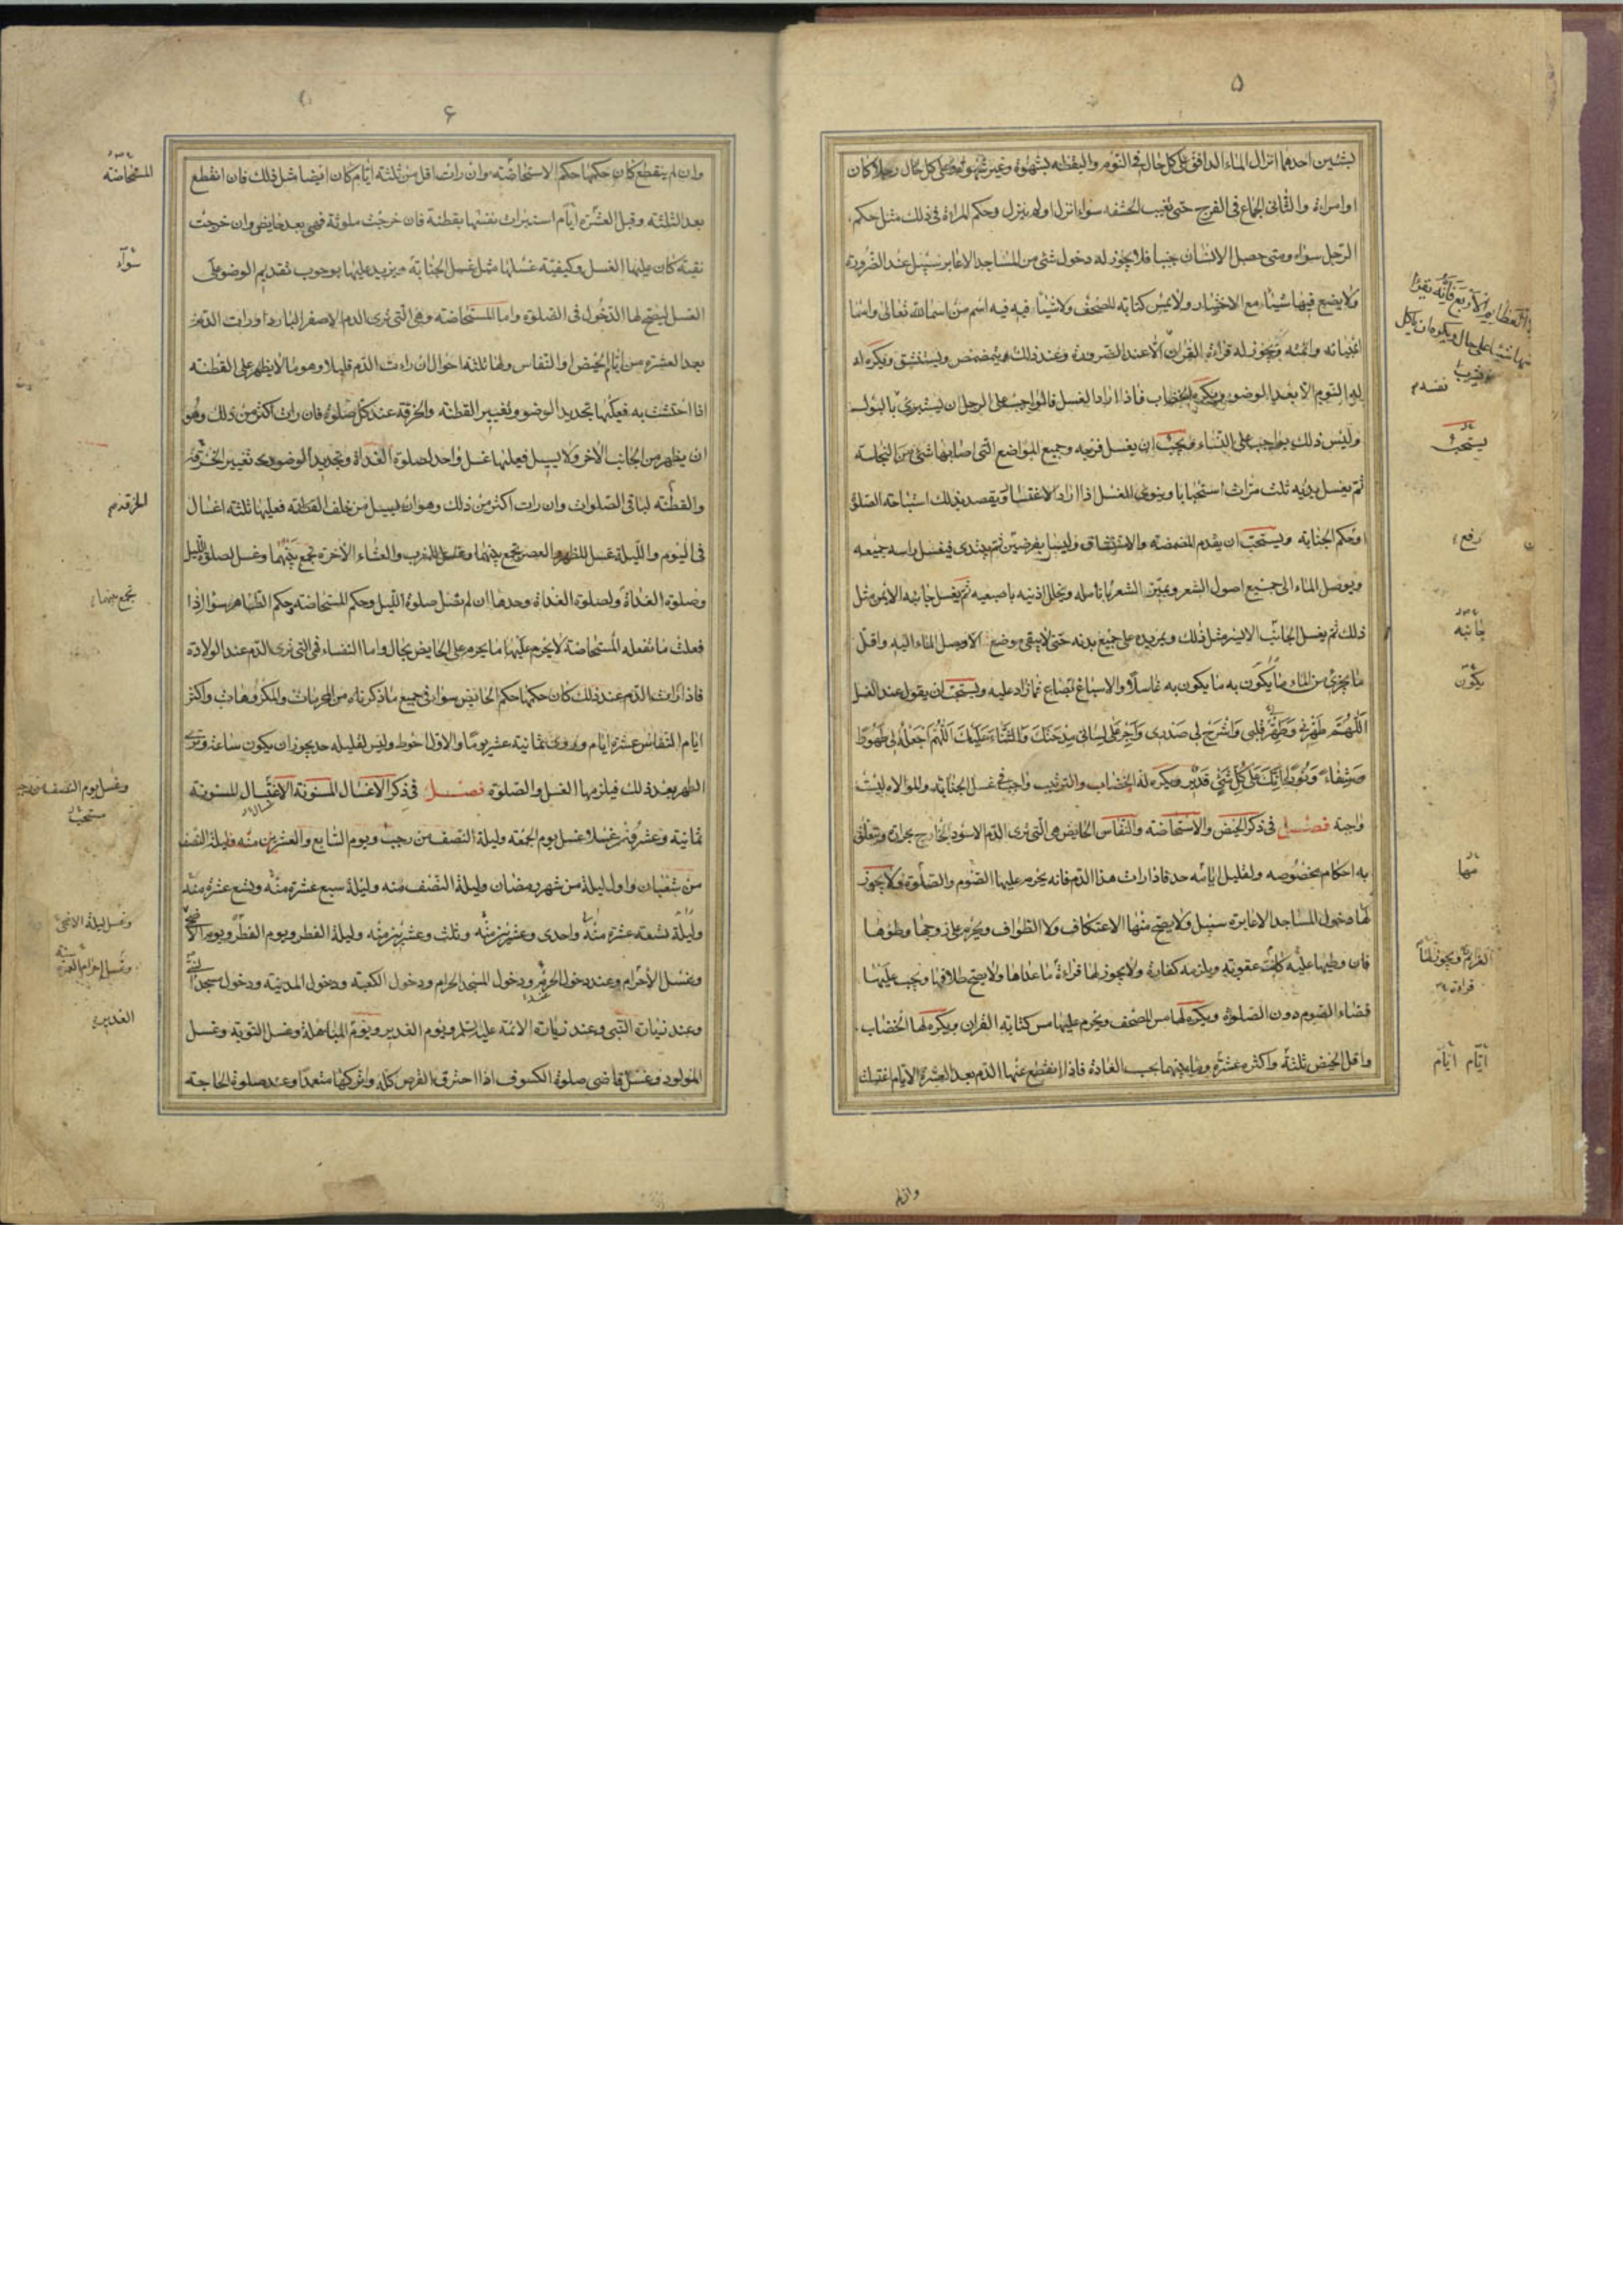 ۵
بشيئين احدهما انزال الماء الدافق على كل حال فى النوم واليقظه بشهوة وغير شهوة وعلى كل حال رجلا كان
او امراة والثانى الجماع فى الفرج حتى تغيب الحشفه سواء انزل او لم ينزل وحكم المراة فى ذلك مثل حكم
الرجل سواء ومتى حصل الانسان جنبا فلا يجوز له دخول شئ من المساجد الا عابر سبيل عند الضرورة
ولا يضع فيها شيئا مع الاختيار ولا يمس كتابه المصحف ولا شيئا فيه اسم من اسماء الله تعالى واسماء
انبيائه وائمته ويجوز له قراءة القران الا عند الضرورة وعند ذلك يتمضمض ويستنشق ويكره له
النوم الا بعد الوضوء ويكره الخضاب فاذا اراد الغسل فالواجب على الرجل ان يستبرئ بالبول
وليس ذلك بواجب على النساء ويجب ان يغسل فرجه وجميع المواضع التى اصابها شئ من النجاسة
ثم يغسل يديه ثلث مرات استحبابا وينوى الغسل اذا اراد الاغتسال ويقصد بذلك استباحة الصلوة
او حكم الجنابه ويستحب ان يقدم المضمضه والاستنشاق وليسا بفرضين ثم يبتدى فيغسل راسه جميعه
ويوصل الماء الى جميع اصول الشعر ويميز الشعر بانامله ويخلل اذنيه باصبعيه ثم يغسل جانبه الايمن مثل
ذلك ثم يغسل الجانب الايسر مثل ذلك ويمر يديه على جميع بدنه حتى لا يبقى موضع الا وصل الماء اليه واقل
ما يجزئ من الماء ما يكون به ما يكون به غاسلا والاسباغ بصاع فما زاد عليه ويستحب ان يقول عند الغسل
اللهم طهرنى وطهر قلبى واشرح لى صدرى واجر على لسانى مدحتك والثناء عليك اللهم اجعله لى طهورا
وشفاء ونورا انك على كل شئ قدير ويكره له الخضاب والترتيب واجب فى غسل الجنابة والموالاة ليست
واجبة فصل فى ذكر الحيض والاستحاضه والنفاس الحايض هى التى ترى الدم الاسود الخارج بحرارة ويتعلق
به احكام مخصوصه ولقليل ايامه حد فاذا رات هذا الدم فانه يحرم عليها الصوم والصلوة ولا يجوز
لها دخول المساجد الا عابرة سبيل ولا يصح منها الاعتكاف ولا الطواف ويحرم على زوجها وطؤها
فان وطيها عليه كانت عقوبته ويلزمه كفارة ولا يجوز لها قراءة ما عداها ولا يصح طلاقها ويجب عليها
قضاء الصوم دون الصلوة ويكره لها مس المصحف ويحرم عليها مس كتابة القران ويكره لها الخضاب
واقل الحيض ثلثة واكثره عشرة وما بينهما بحسب العادة فاذا انقطع عنها الدم بعد العشرة الايام اغتسلت
يستحب
رفع
جانبه
يكون
منها
ايام ايام
وان لم
۶
وان لم ينقطع كان حكمها حكم الاستحاضه وان رات اقل من ثلثة ايام كان ايضا مثل ذلك فان انقطع
بعد الثلثه وقبل العشرة ايام استبرات نفسها بقطنة فان خرجت ملوثة فهى بعد حايض وان خرجت
نقية كان عليها الغسل وكيفية غسلها مثل غسل الجنابة ويزيد عليها بوجوب تقديم الوضوء على
الغسل ليصح لها الدخول فى الصلوة واما المستحاضه وهى التى ترى الدم الاصفر البارد او رات الدم
بعد العشرة من ايام الحيض او النفاس ولها ثلثة احوال ان رات الدم قليلا وهو ما لا يظهر على القطنه
اذا احتشت به فعليها تجديد الوضوء وتغيير القطنه والخرقة عند كل صلوة فان رات اكثر من ذلك وهو
ان يظهر من الجانب الاخر ولا يسيل فعليها غسل واحد لصلوة الغداة وتجديد الوضوء تغيير الخرقة
والقطنه لباقى الصلوات وان رات اكثر من ذلك وهو ان يسيل من خلف القطنه فعليها ثلثة اغسال
فى اليوم والليلة غسل للظهر والعصر تجمع بينهما وغسل للمغرب والعشاء الاخرة تجمع بينهما وغسل لصلوة الليل
وصلوة الغداة ولصلوة الغداة وحدها ان لم تصل صلوة الليل وحكم المستحاضه حكم الطاهر سوا اذا
فعلت ما تفعله المستحاضة لا يحرم عليها ما يحرم على الحايض بحال واما النفساء فهى التى ترى الدم عند الولادة
فاذا رات الدم عند ذلك كان حكمها حكم الحايض سواء فى جميع ما ذكرناه من المحرمات والمكروهات واكثر
ايام النفاس عشرة ايام وروى ثمانية عشر يوما والاول احوط وليس لقليله حد يجوز ان يكون ساعة وترى
الطهر بعد ذلك فيلزمها الغسل والصلوة فصل فى ذكر الاغسال المسنونة الاغتسال المسنونة
ثمانية وعشرون غسلا غسل يوم الجمعه وليلة النصف من رجب ويوم السابع والعشرين منه وليلة النصف
من شعبان واول ليلة من شهر رمضان وليلة النصف منه وليلة سبع عشرة منه وتسع عشرة منه
وليلة تسعه عشرة منه واحدى وعشرين منه وثلث وعشرين منه وليلة الفطر ويوم الفطر ويوم الاضحى
وغسل الاحرام وعند دخول الحرم ودخول المسجد الحرام ودخول الكعبة ودخول المدينه ودخول مسجد النبى
وعند زيارة النبى وعند زيارة الائمه عليهم السلم ويوم الغدير ويوم المباهلة وغسل التوبة وغسل
المولود وغسل قاضى صلوة الكسوف اذا احترق القرص كله وتركها متعمدا وعند صلوة الحاجة
المستحاضة
سواء
الخرقة
تجمع بينهما
وغسل ليلة الاضحى
الغدير